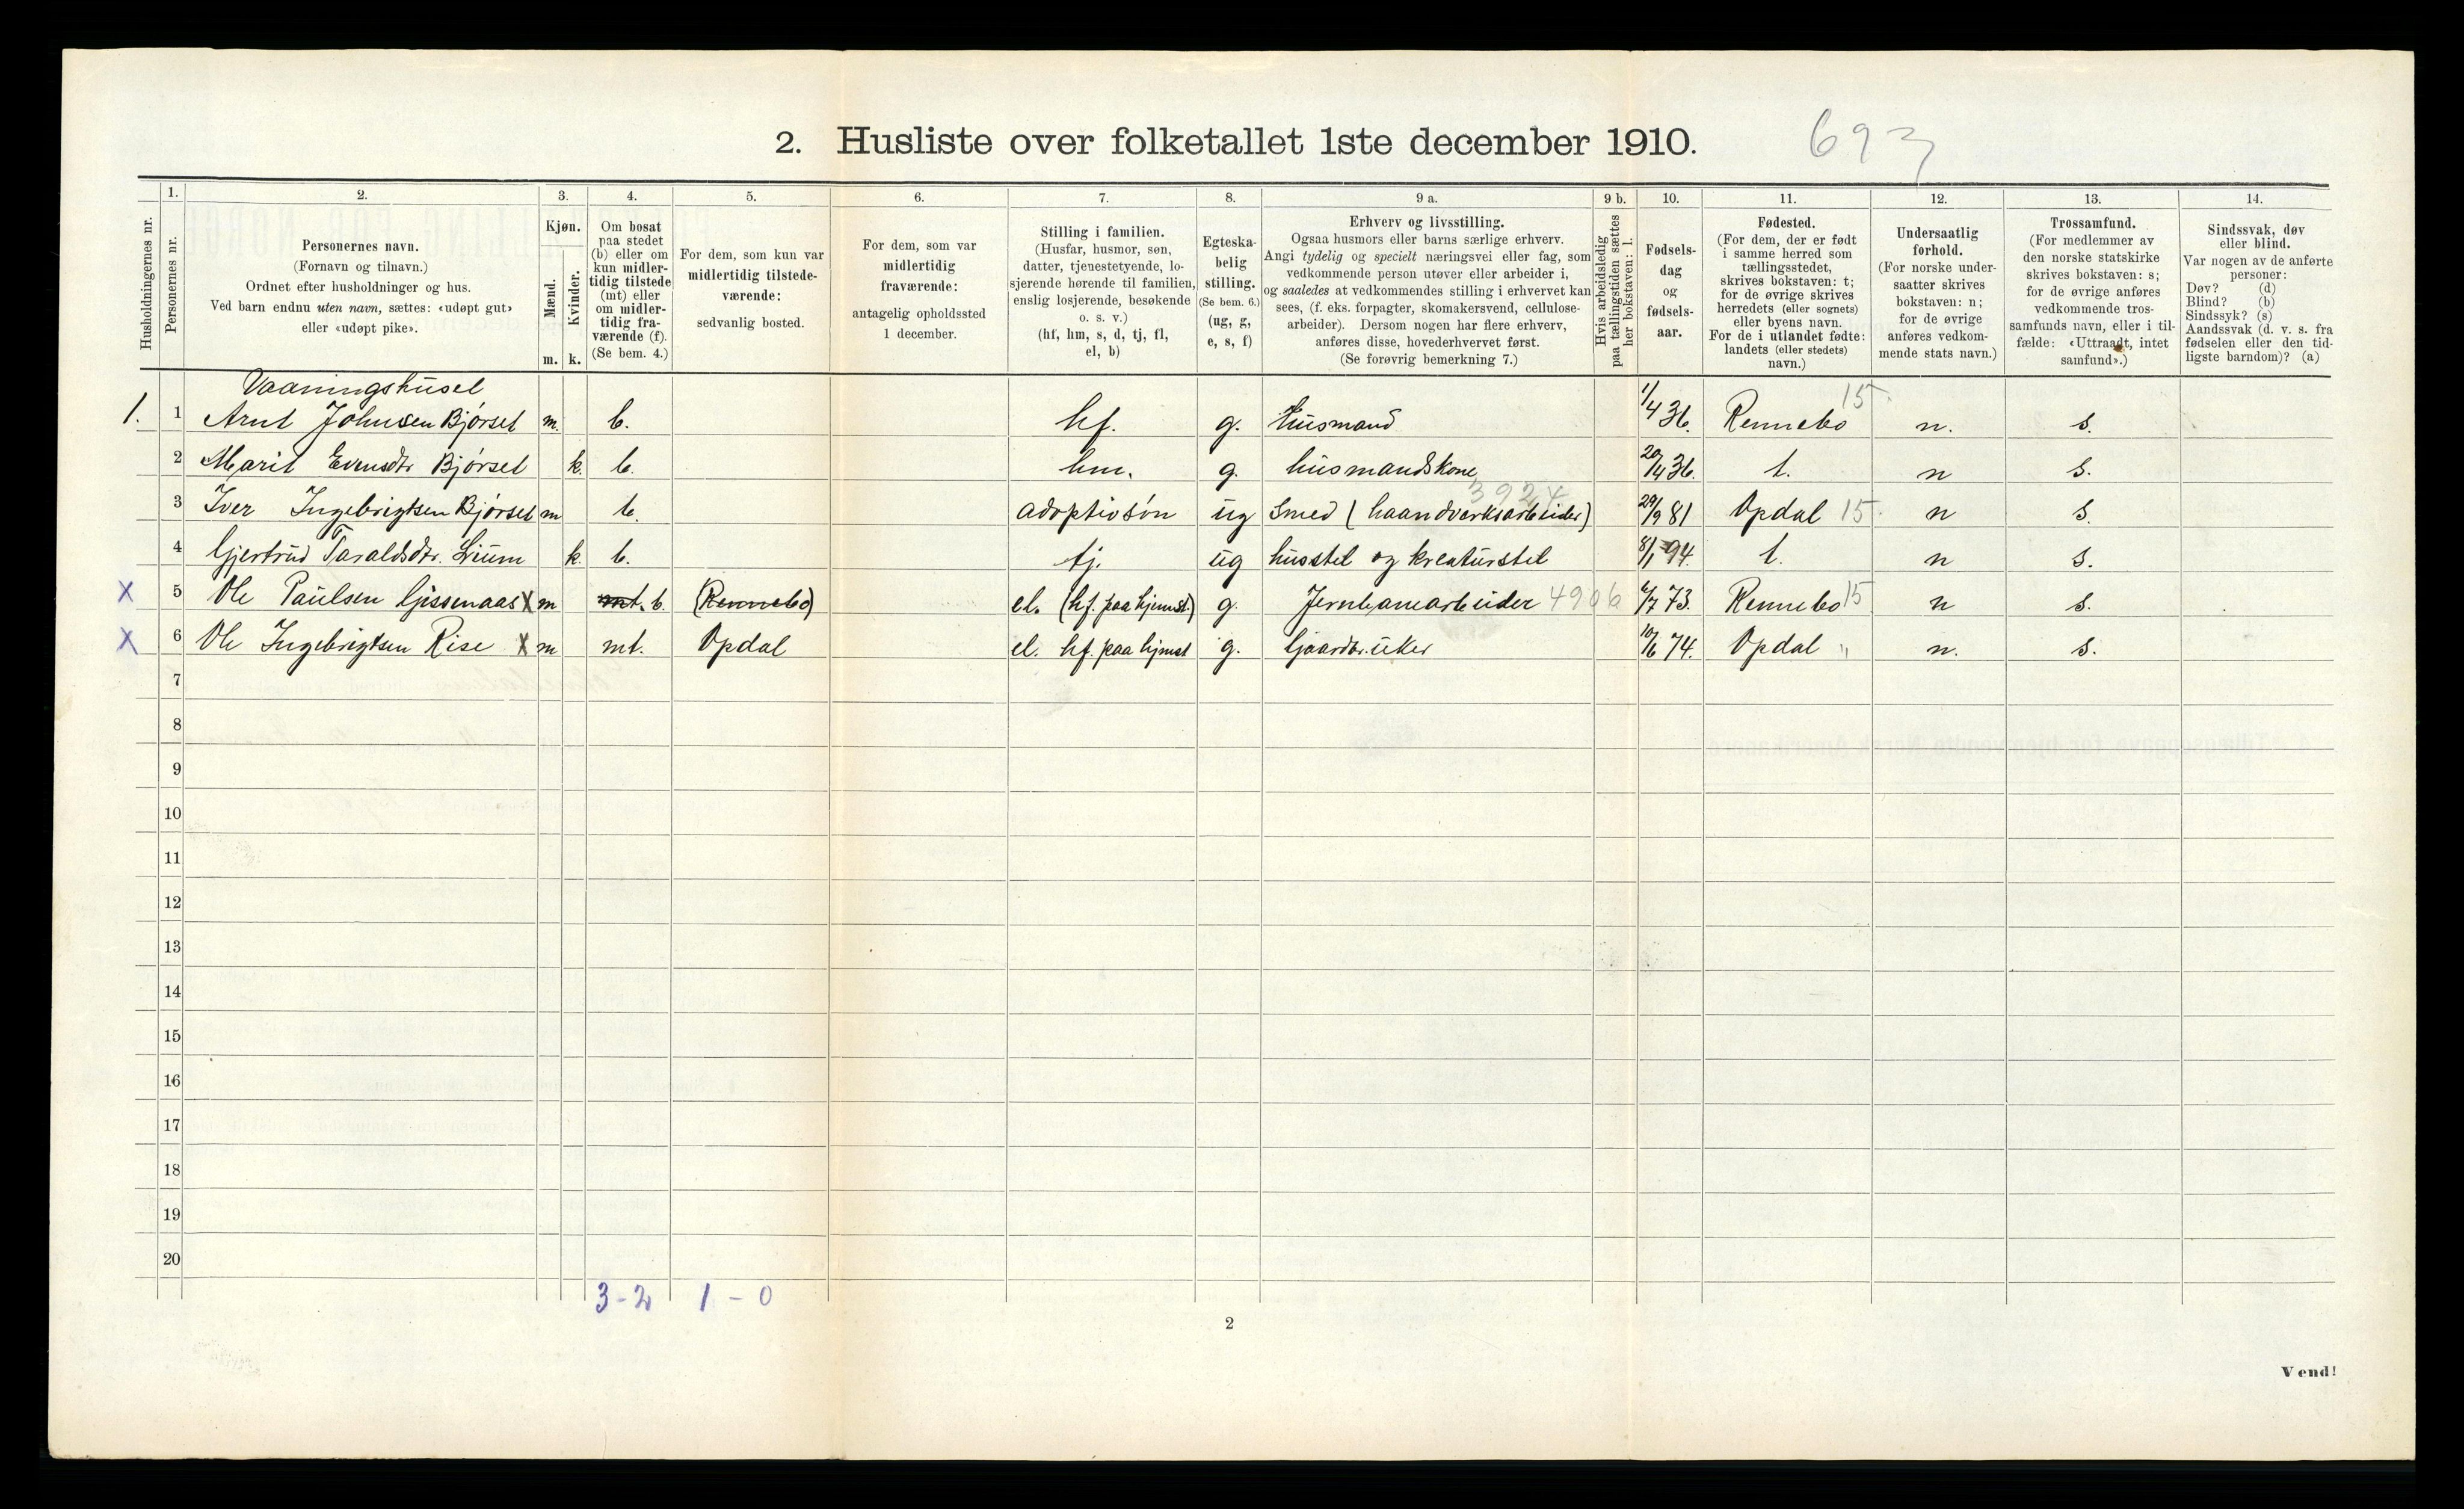 2. Husliste over folketallet 1ste december 1910.
693
1. 2. 3. 4. 5. 6. 7. 8. 9 a. 9 b. 10. 11. 12. 13. 14.
Husholdningernes nr.
Personernes nr.
Personernes navn.
(Fornavn og tilnavn.)
Ordnet efter husholdninger og hus.
Ved barn endnu uten navn, sættes: «udøpt gut»
eller «udøpt pike».
Kjøn.
Mænd.
Kvinder.
m. k.
Om bosat
paa stedet
(b) eller om
kun midler-
tidig tilstede
(mt) eller
om midler-
tidig fra-
værende (f).
(Se bem. 4.)
For dem, som kun var
midlertidig tilstede-
værende:
sedvanlig bosted.
For dem, som var
midlertidig
fraværende:
antagelig opholdssted
1 december.
Stilling i familien.
(Husfar, husmor, søn,
datter, tjenestetyende, lo-
sjerende hørende til familien,
enslig losjerende, besøkende
o. s. v.)
(hf, hm, s, d, tj, fl,
el, b)
Egteska-
belig
stilling.
(Se bem. 6.)
(ug, g,
e, s, f)
Erhverv og livsstilling.
Ogsaa husmors eller barns særlige erhverv.
Angi tydelig og specielt næringsvei eller fag, som
vedkommende person utøver eller arbeider i,
og saaledes at vedkommendes stilling i erhvervet kan
sees, (f. eks. forpagter, skomakersvend, cellulose-
arbeider). Dersom nogen har flere erhverv,
anføres disse, hovederhvervet først.
(Se forøvrig bemerkning 7.)
Hvis arbeidsledig
paa tællingstiden sættes
her bokstaven: l.
Fødsels-
dag
og
fødsels-
aar.
Fødested.
(For dem, der er født
i samme herred som
tællingsstedet,
skrives bokstaven: t;
for de øvrige skrives
herredets (eller sognets)
eller byens navn.
For de i utlandet fødte:
landets (eller stedets)
navn.)
Undersaatlig
forhold.
(For norske under-
saatter skrives
bokstaven: n;
for de øvrige
anføres vedkom-
mende stats navn.)
Trossamfund.
(For medlemmer av
den norske statskirke
skrives bokstaven: s;
for de øvrige anføres
vedkommende tros-
samfunds navn, eller i til-
fælde: «Uttraadt, intet
samfund».)
Sindssvak, døv
eller blind.
Var nogen av de anførte
personer:
Døv? (d)
Blind? (b)
Sindssyk? (s)
Aandssvak (d. v. s. fra
fødselen eller den tid-
ligste barndom)? (a)
Vaaningshuset
1. 1 Arnt Johnsen Bjørset m. b. hf. g. Husmand 1/4 36. Rennebo 15 n. s.
2 Marit Evensdtr Bjørset k. b. hm. g. husmandskone 20/4 36. t. n s.
3 Iver Ingebrigtsen Bjørset m b. adoptivsøn ug Smed (haandverksarbeider) 3924 29/9 81 Opdal 15. n s.
4 Gjertrud Taraldsdtr. Lium k. b. tj. ug husstel og kreaturstel 8/1 94. t. n s.
X 5 Ole Paulsen Gissenaas X m mt. b. (Rennebo) el. (hf. paa hjemst.) g. Jernbanearbeider 4906 4/7 73. Rennebo 15 n s.
X 6 Ole Ingebrigtsen Rise X m mt. Opdal el. hf. paa hjemst g. Gaardbruker 10/6 74. Opdal " n. s.
7
8
9
10
11
12
13
14
15
16
17
18
19
20
3-2 1-0
2
Vend!